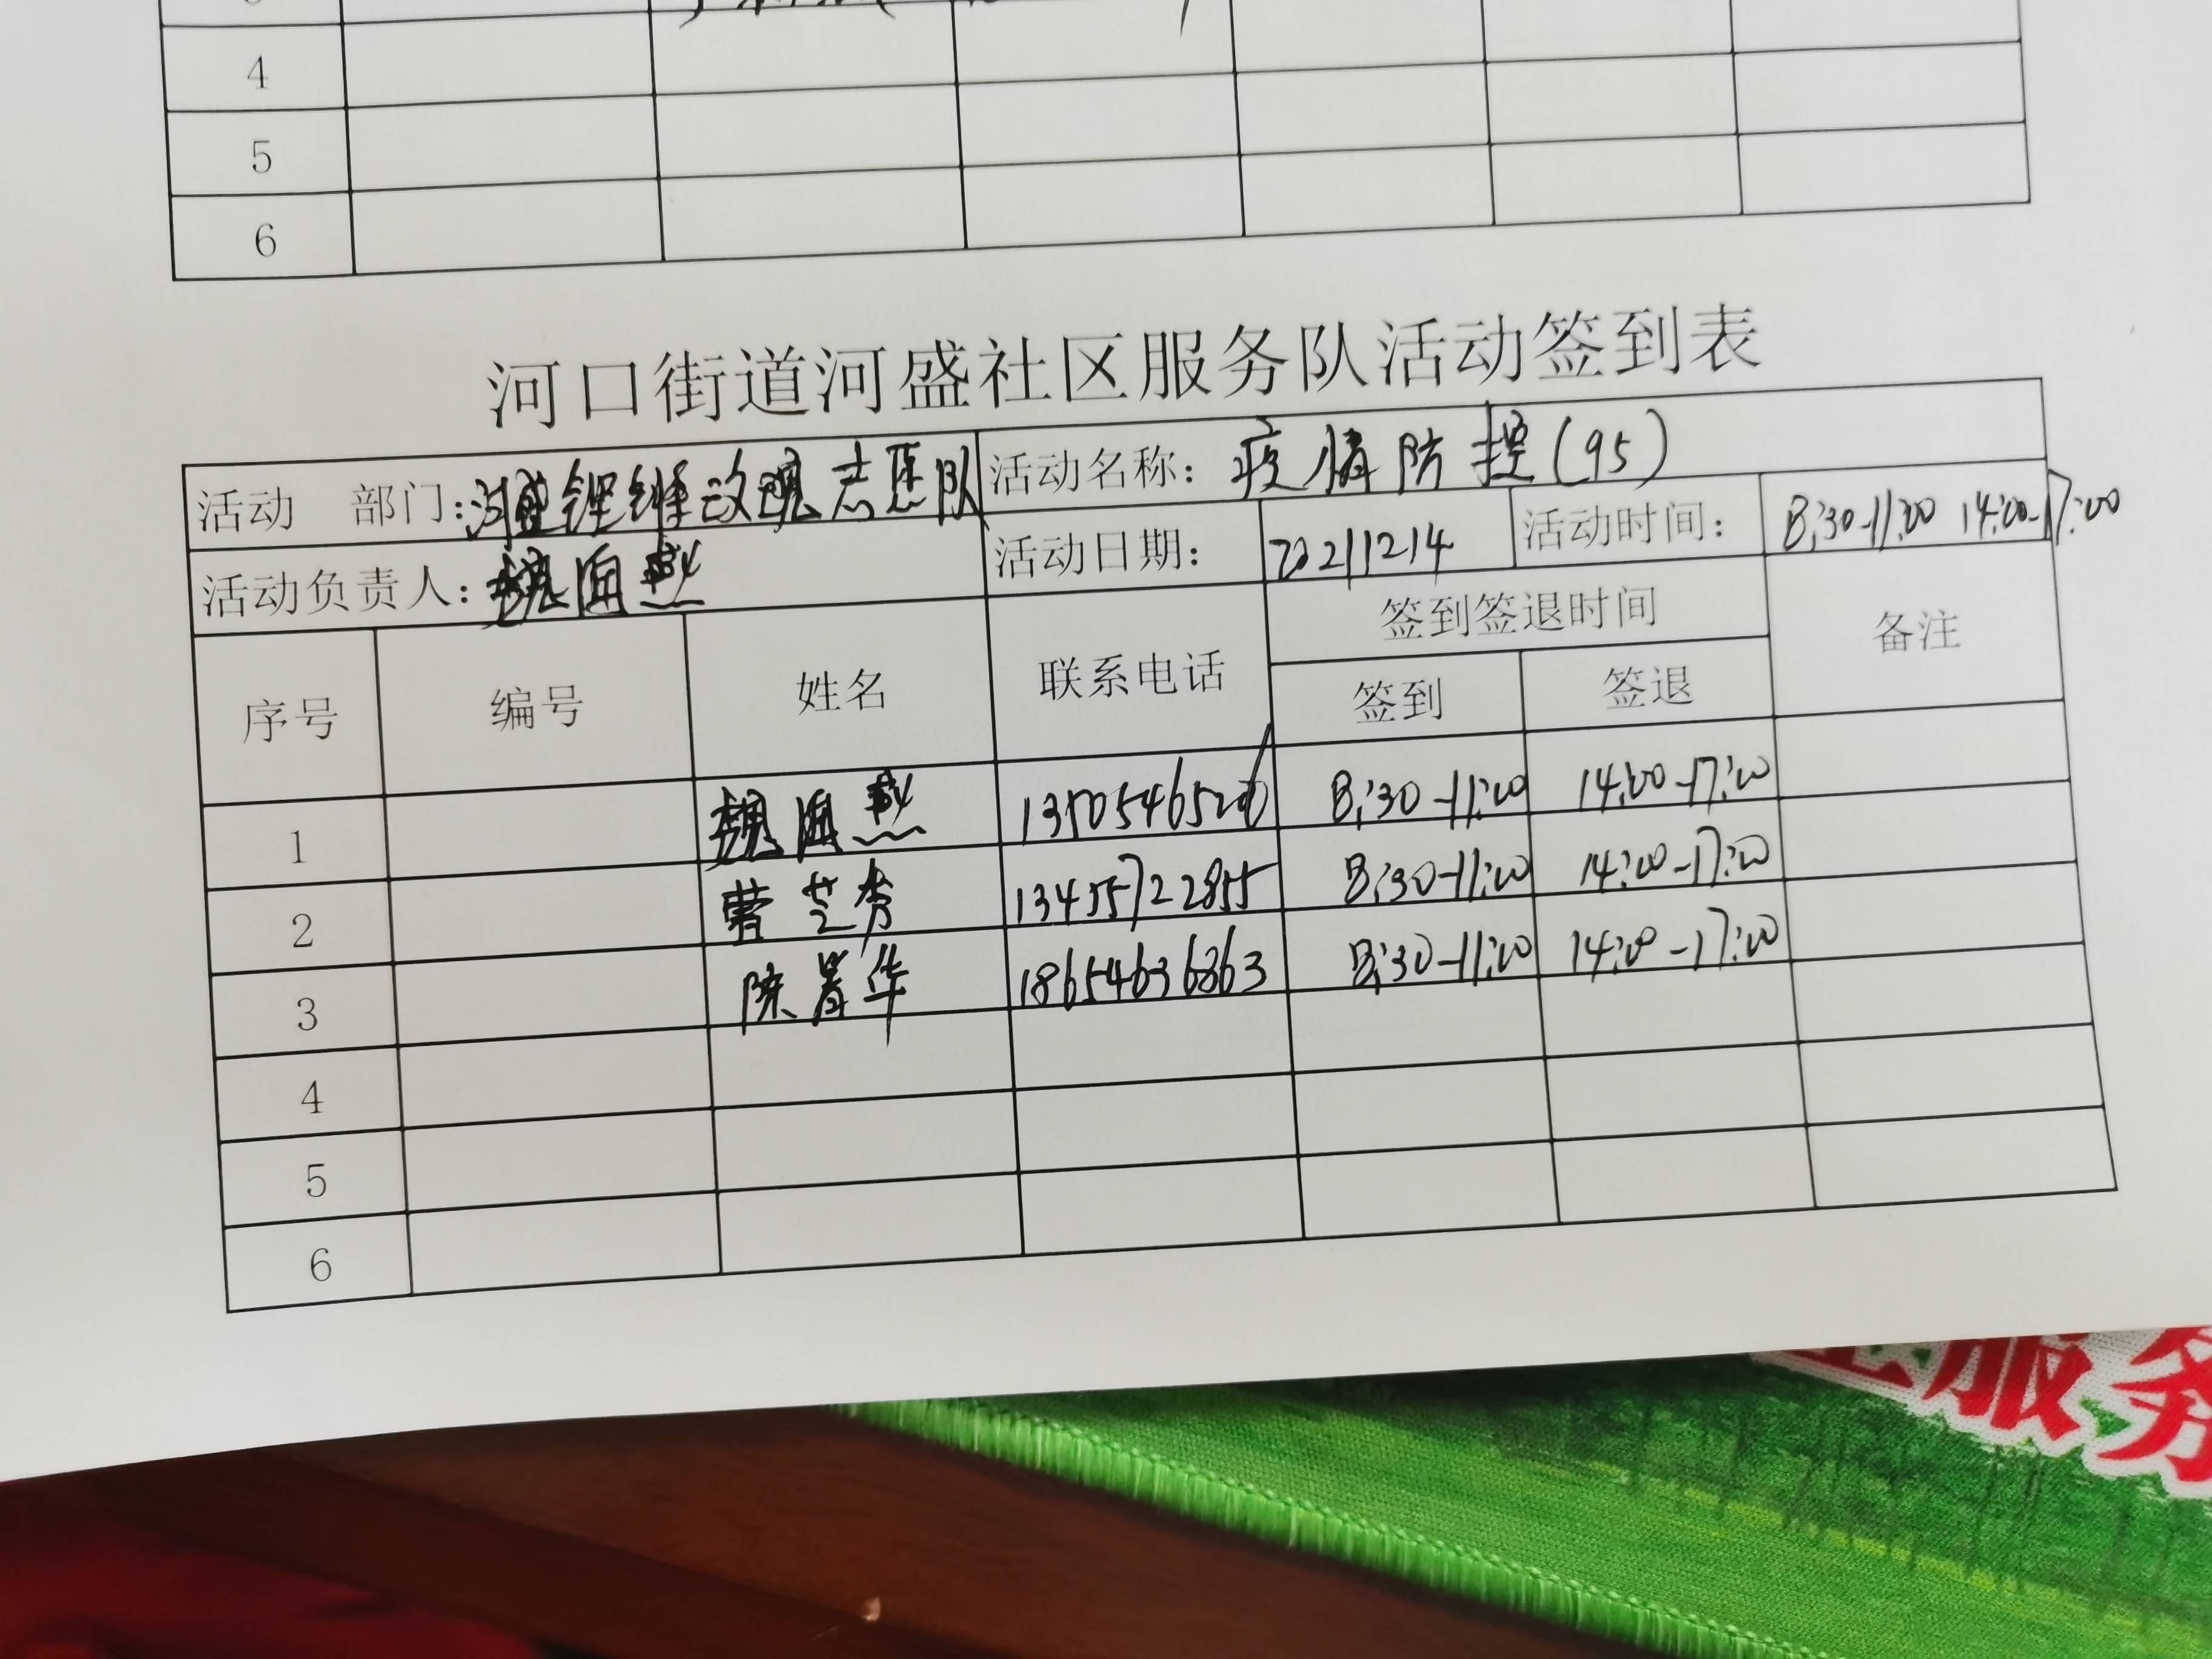 4
5
6
河口街道河盛社区服务队活动签到表
活动 部门: 河盛 志愿队 活动名称: 疫情防控(95)
活动负责人: 活动日期: 20211214 活动时间: 8:30-11:00 14:00-17:00
序号 编号 姓名 联系电话 签到签退时间 备注
签到 签退
1 8:30-11:00 14:00-17:00
2 曹芝秀 13455722855 8:30-11:00 14:00-17:00
3 陈 华 18654636863 8:30-11:00 14:00-17:00
4
5
6
服务